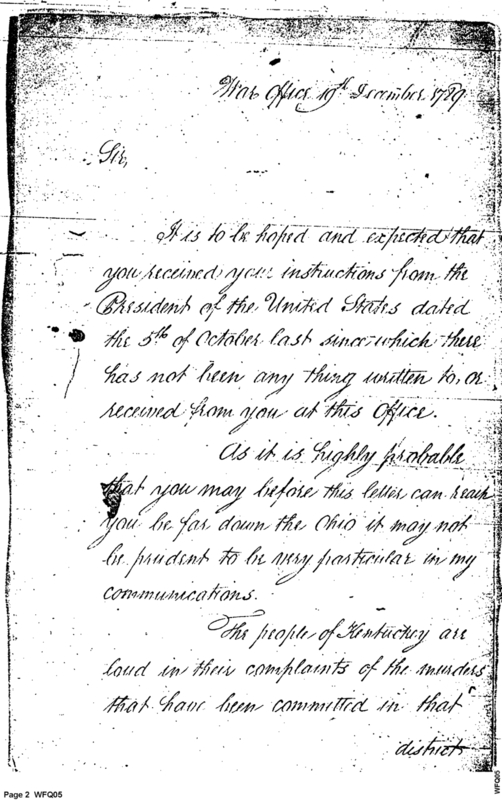 War Office 19th December 1789
Sir,
It is to be hoped and expected that
you received your instructions from the
President of the United States dated
the 5th of October last since which there
has not been any thing written to, or
received from you at this Office.
As it is highly probable
that you may before this letter can reach
you be far down the Ohio it may not
be prudent to be very particular in my
communications.
The people of Kentuckey are
loud in their complaints of the murders
that have been committed in that
district
Page 2 WFQ05
WFQ05